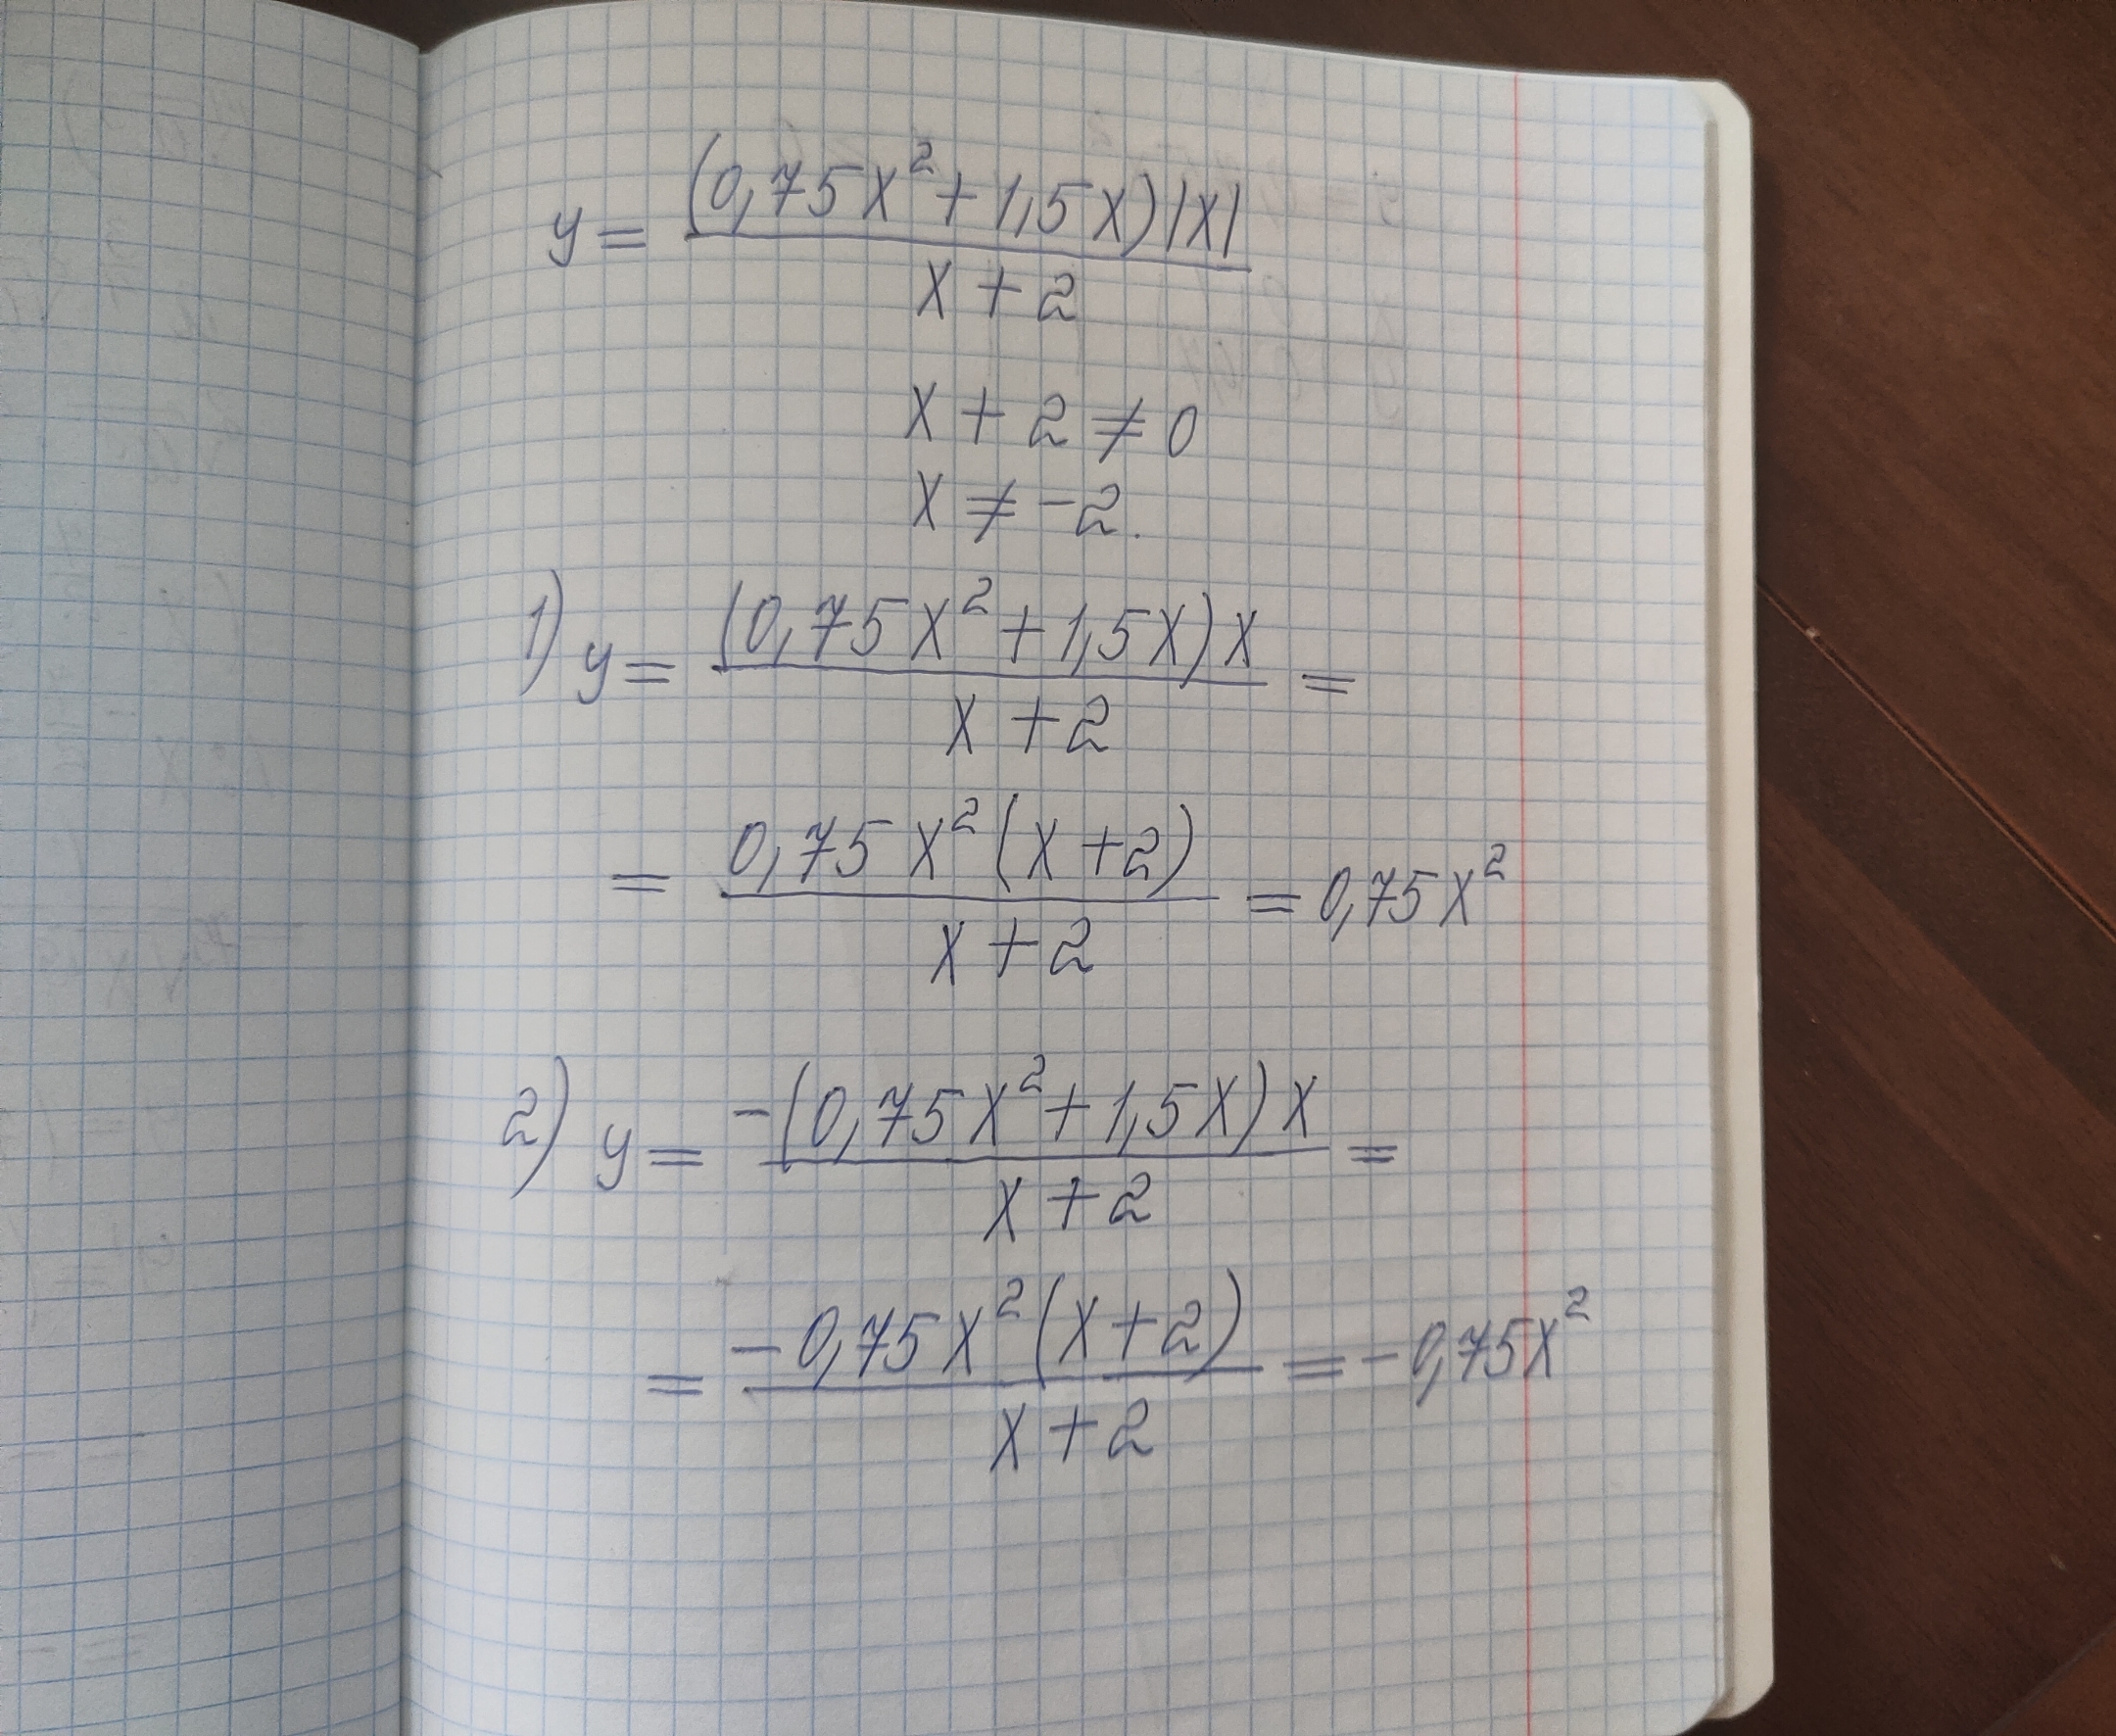 y = (0,75x² + 1,5x)|x| / x + 2
x + 2 ≠ 0
x ≠ -2.
1) y = (0,75x² + 1,5x)x / x + 2 =
= 0,75x²(x + 2) / x + 2 = 0,75x²
2) y = -(0,75x² + 1,5x)x / x + 2 =
= -0,75x²(x + 2) / x + 2 = -0,75x²